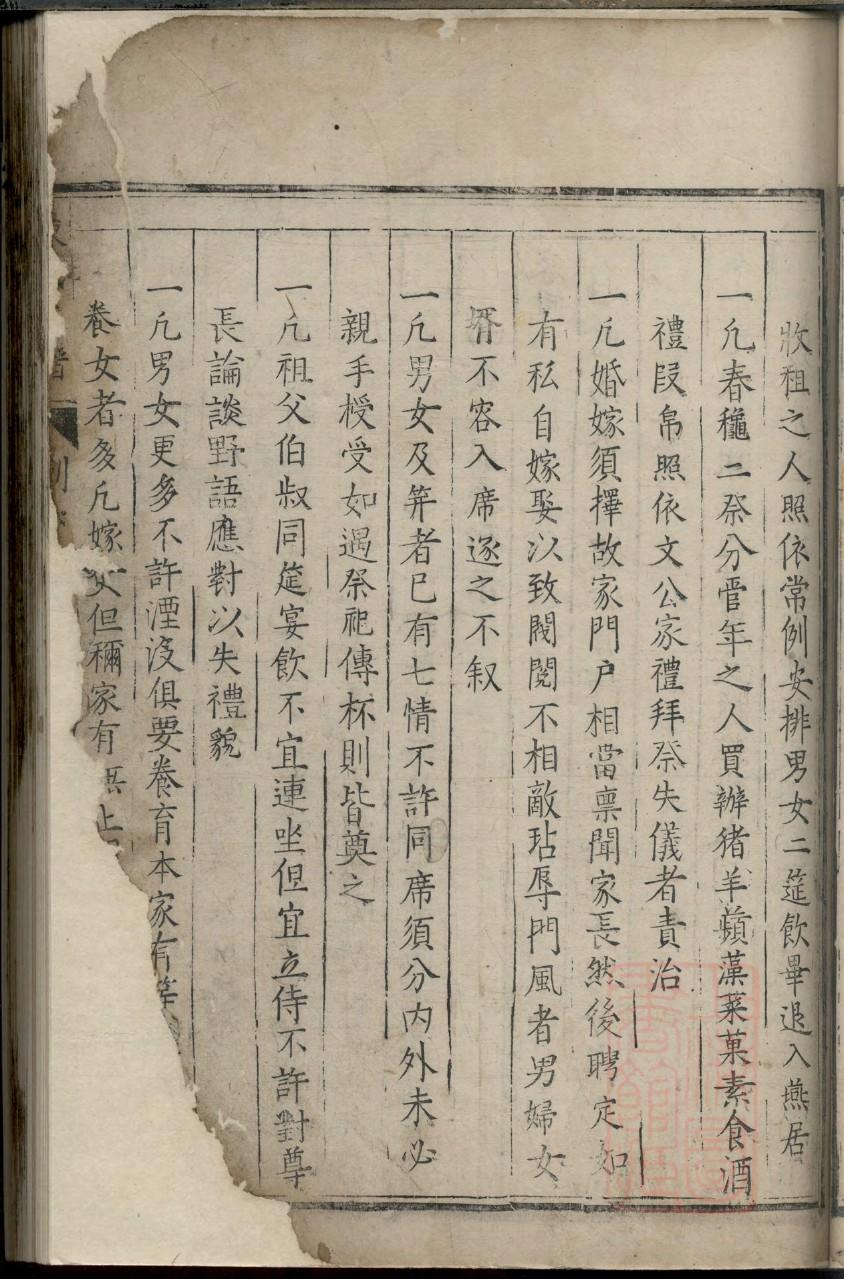 收租之人照依常例安排男女二筵飲畢退入燕居
一凢春穐二祭分管年之人買辦猪羊蘋藻菜菓素食酒
禮段帛照依文公家禮拜祭失儀者責治
一凢婚嫁須擇故家門户相當禀聞家長然後聘定如
有私自嫁娶以致閥閱不相敵玷辱門風者男婦女
壻不容入席逐之不叙
一凢男女及笄者已有七情不許同席須分内外未必
親手授受如遇祭祀傳杯則皆奠之
一凢祖父伯叔同筵宴飲不宜連坐但宜立侍不許對尊
長論談野語應對以失禮貌
一凢男女更多不許湮没俱要養育本家有等
養女者多凢嫁女但稱家有無上